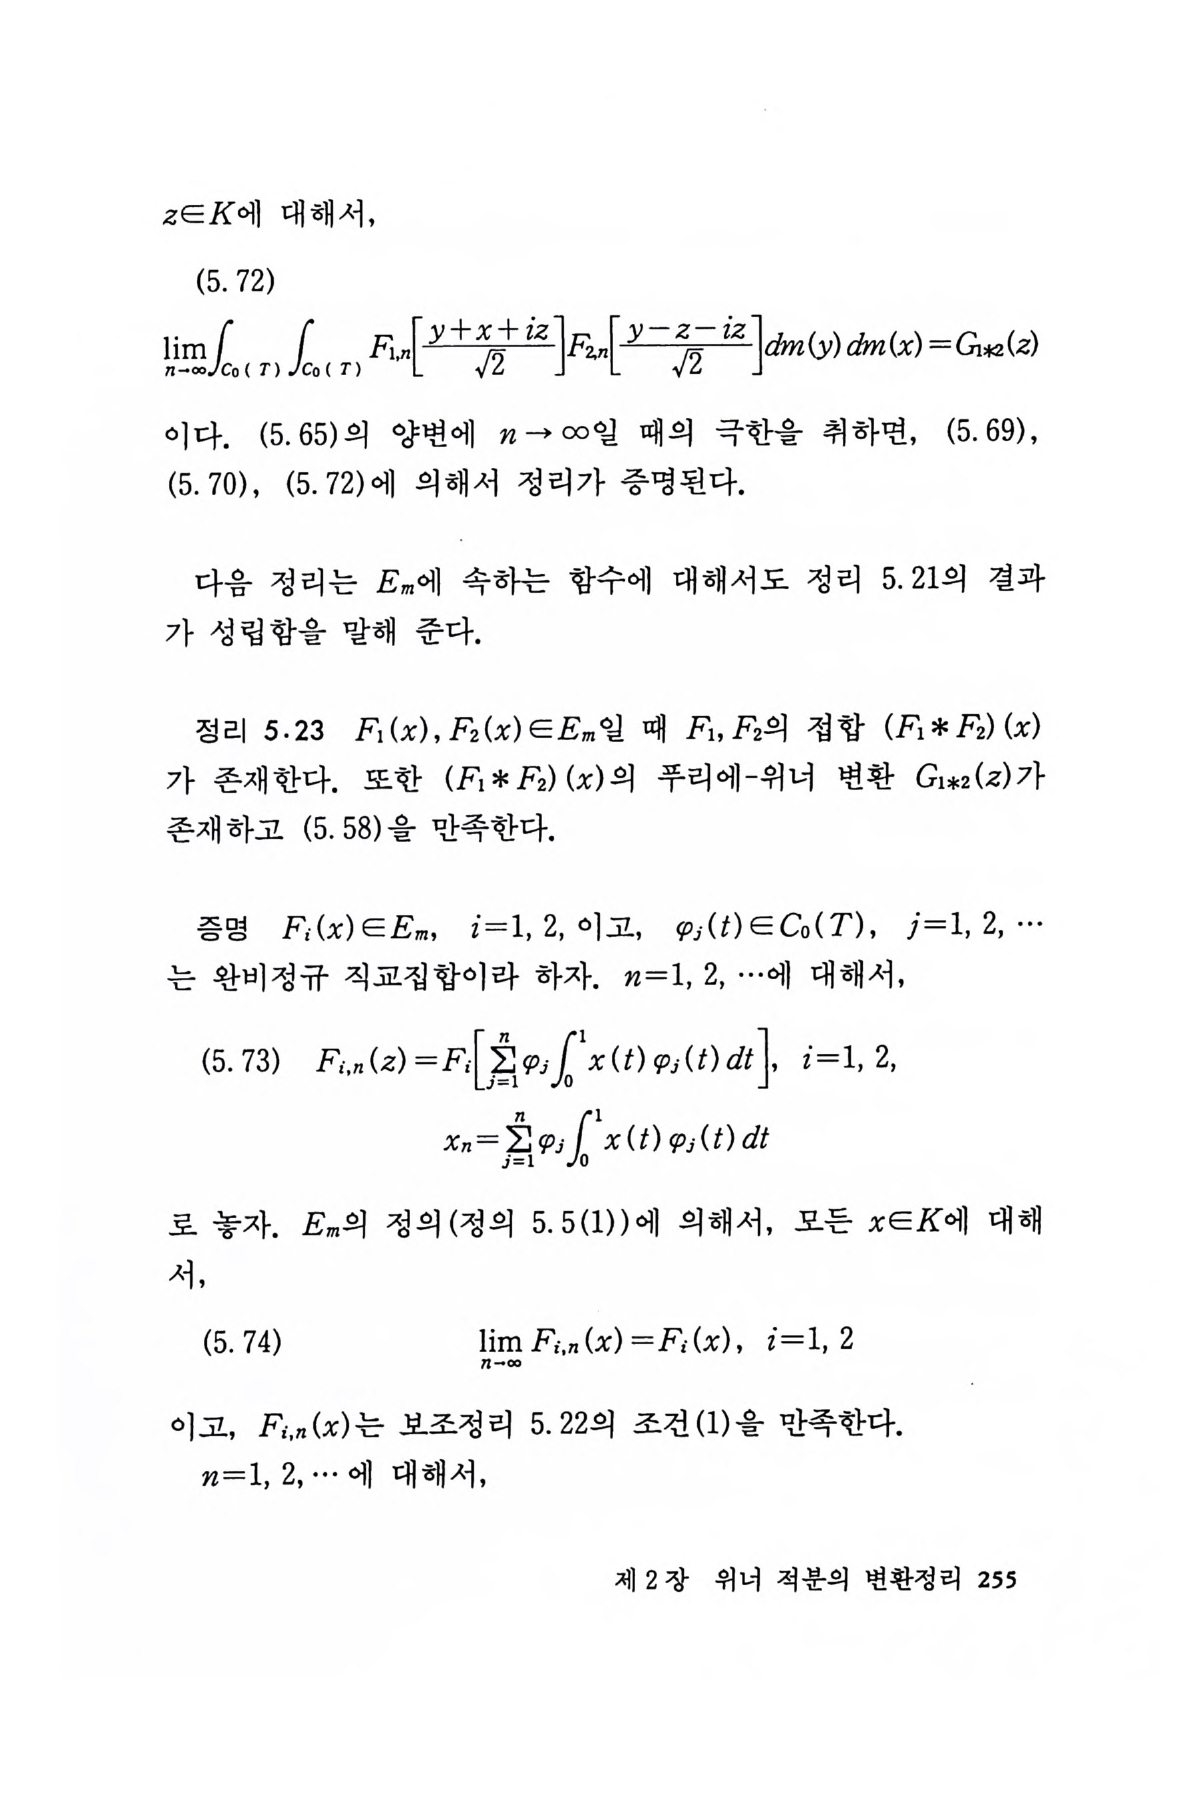 z∈K에 대해서,
(5. 72)
lim_{n→∞} ∫_{C₀(T)} ∫_{C₀(T)} F_{1,n}[(y+x+iz)/√2] F_{2,n}[(y−z−iz)/√2] dm(y) dm(x) = G_{1*2}(z)
이다. (5. 65)의 양변에 n→∞일 때의 극한을 취하면, (5. 69),
(5. 70), (5. 72)에 의해서 정리가 증명된다.
다음 정리는 E_m에 속하는 함수에 대해서도 정리 5. 21의 결과
가 성립함을 말해 준다.
정리 5·23 F₁(x), F₂(x)∈E_m일 때 F₁, F₂의 접합 (F₁*F₂)(x)
가 존재한다. 또한 (F₁*F₂)(x)의 푸리에-위너 변환 G_{1*2}(z)가
존재하고 (5. 58)을 만족한다.
증명 F_i(x)∈E_m, i=1, 2, 이고, φ_j(t)∈C₀(T), j=1, 2, …
는 완비정규 직교집합이라 하자. n=1, 2, …에 대해서,
(5. 73) F_{i,n}(z)=F_i[∑_{j=1}^{n} φ_j ∫_0^1 x(t) φ_j(t) dt], i=1, 2,
x_n=∑_{j=1}^{n} φ_j ∫_0^1 x(t) φ_j(t) dt
로 놓자. E_m의 정의(정의 5. 5(1))에 의해서, 모든 x∈K에 대해
서,
(5. 74) lim_{n→∞} F_{i,n}(x)=F_i(x), i=1, 2
이고, F_{i,n}(x)는 보조정리 5. 22의 조건(1)을 만족한다.
n=1, 2, … 에 대해서,
제 2 장 위너 적분의 변환정리 255